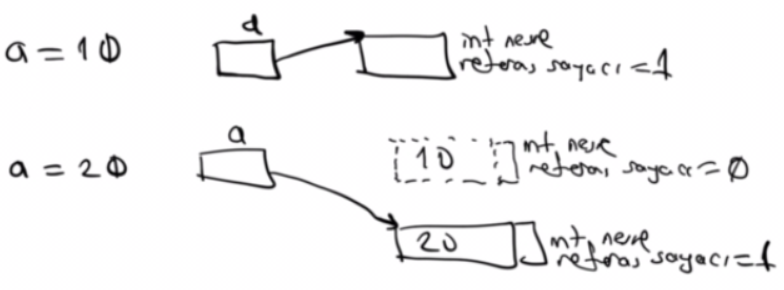 a = 10
a
int nesne
referans sayacı = 1
a = 20
a
10
int nesne
referans sayacı = 0
20
int nesne
referans sayacı = 1